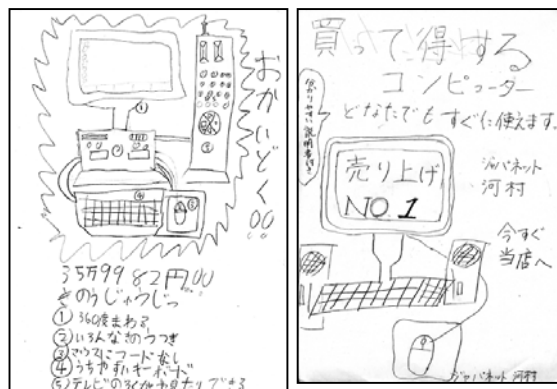 おかいどく!!
①
②
③
④
⑤
35万9982円!!
きのうじゅうじつ
① 360度まわる
② いろんなきのうつき
③ マウスにコードなし
④ うちやすいキーボード
買って得する
コンピューター
どなたでもすぐに使えます。
分かりやすい説明書付き
売り上げ
NO.1
ジャパネット
河村
今すぐ
当店へ
ジャパネット 河村